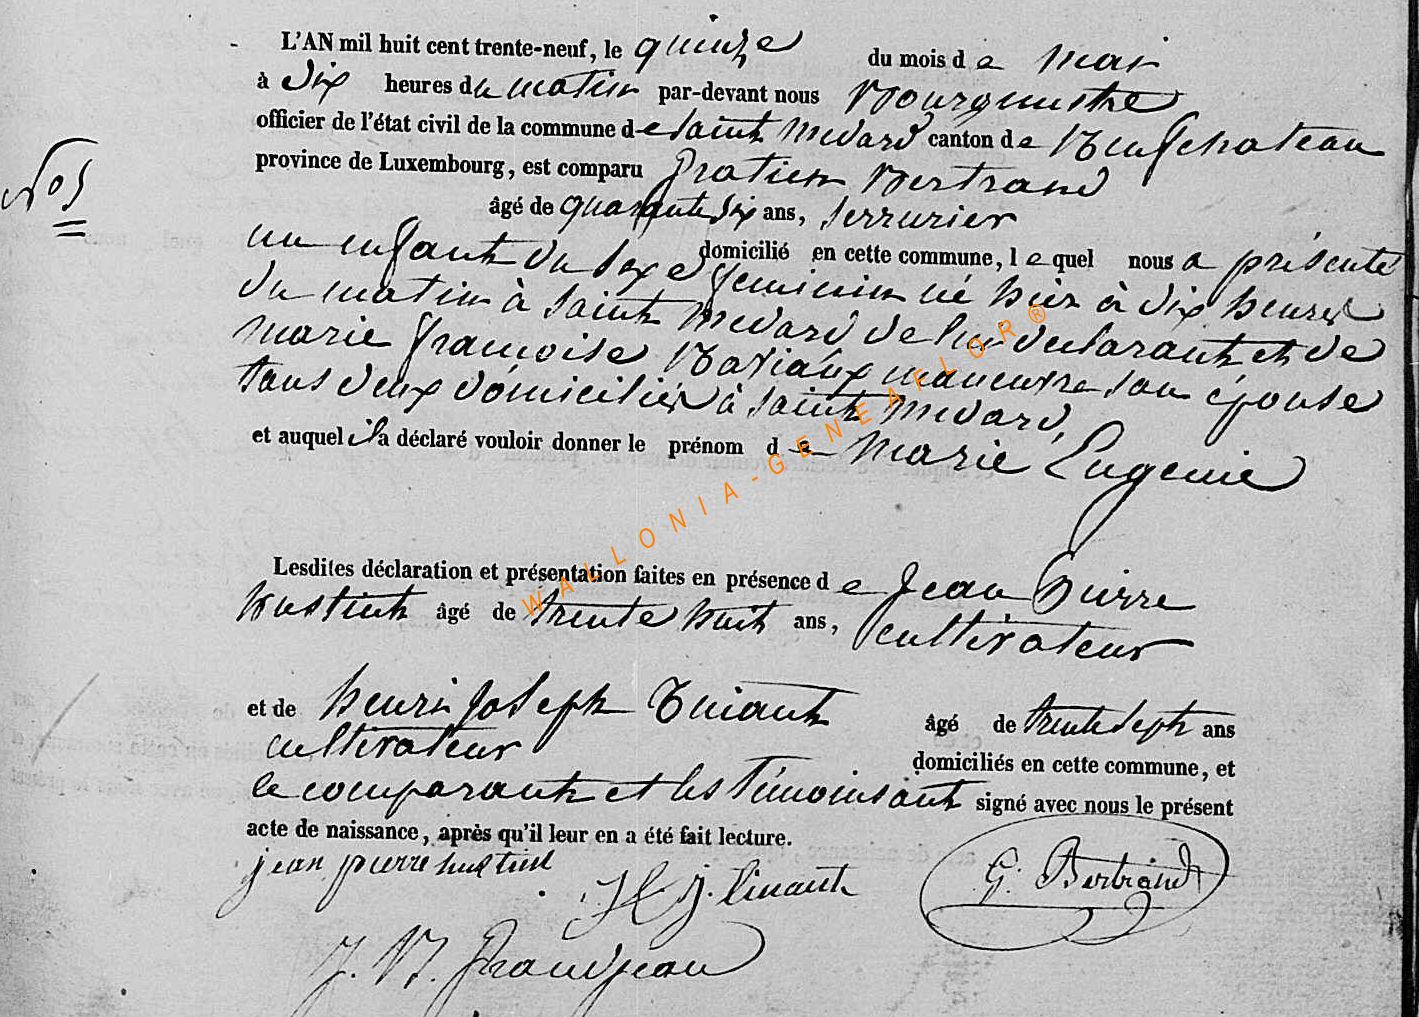 L'AN mil huit cent trente-neuf, le quinze du mois de mai
à dix heures du matin par-devant nous Bourgmestre
officier de l'état civil de la commune de Saint Medard canton de Neufchateau
province de Luxembourg, est comparu Gratien Bertrand
N° 5
âgé de quarante six ans, serrurier
domicilié en cette commune, lequel nous a présenté
un enfant du sexe feminin né hier à dix heures
du matin à Saint Medard de lui declarant et de
Marie Françoise manouvre son épouse
tous deux domiciliés à Saint Medard,
et auquel il a déclaré vouloir donner le prénom de Marie Eugenie
Lesdites déclaration et présentation faites en présence de Jean Pierre
Hustint âgé de trente huit ans, cultivateur
et de henri Joseph âgé de trente sept ans
cultivateur domiciliés en cette commune, et
le comparant et les témoins ont signé avec nous le présent
acte de naissance, après qu'il leur en a été fait lecture.
jean pierre hustint
H. J. G. Bertrand
J. N. Grandjean
WALLONIA-GENEAFLOR®